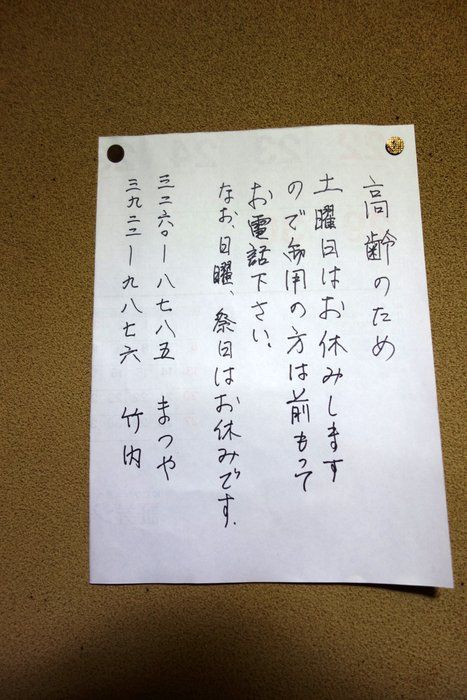 高齢のため
土曜日はお休みします
ので御用の方は前もって
お電話下さい。
なお、日曜、祭日はお休みです.
三二六〇ー八七八五 まつや
三九二二ー九八七六 竹内